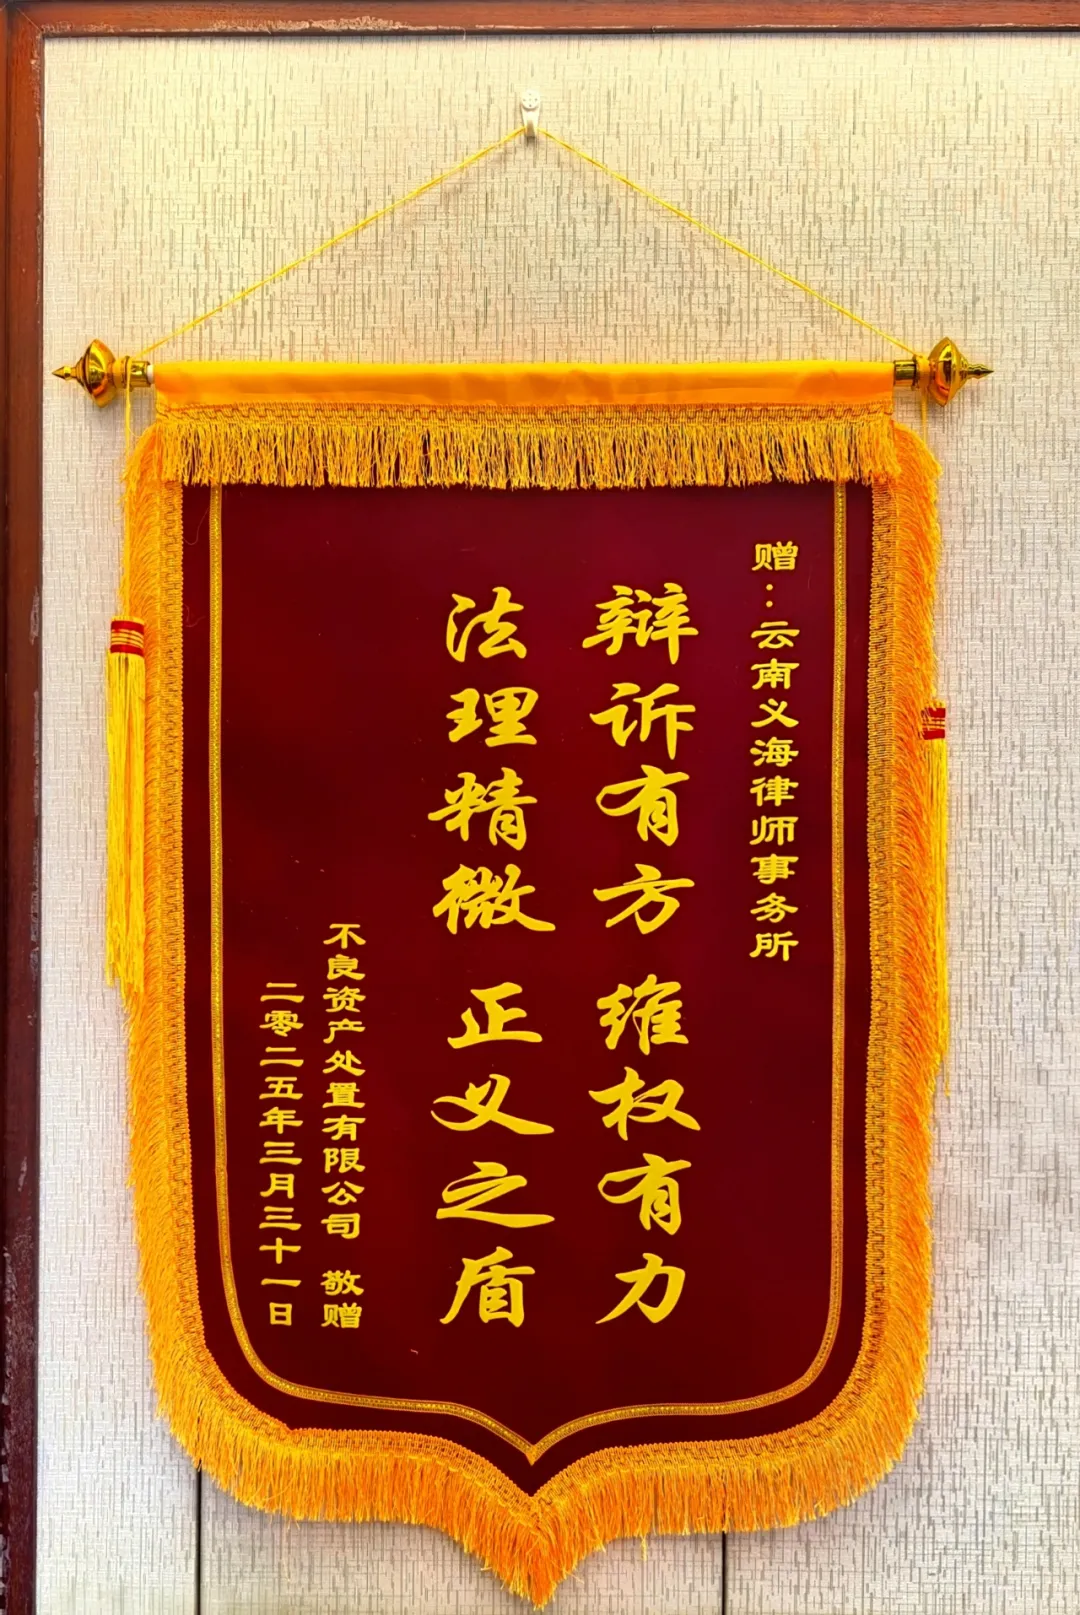 赠：云南义海律师事务所
辩诉有方 维权有力
法理精微 正义之盾
不良资产处置有限公司 敬赠
二零二五年三月三十一日